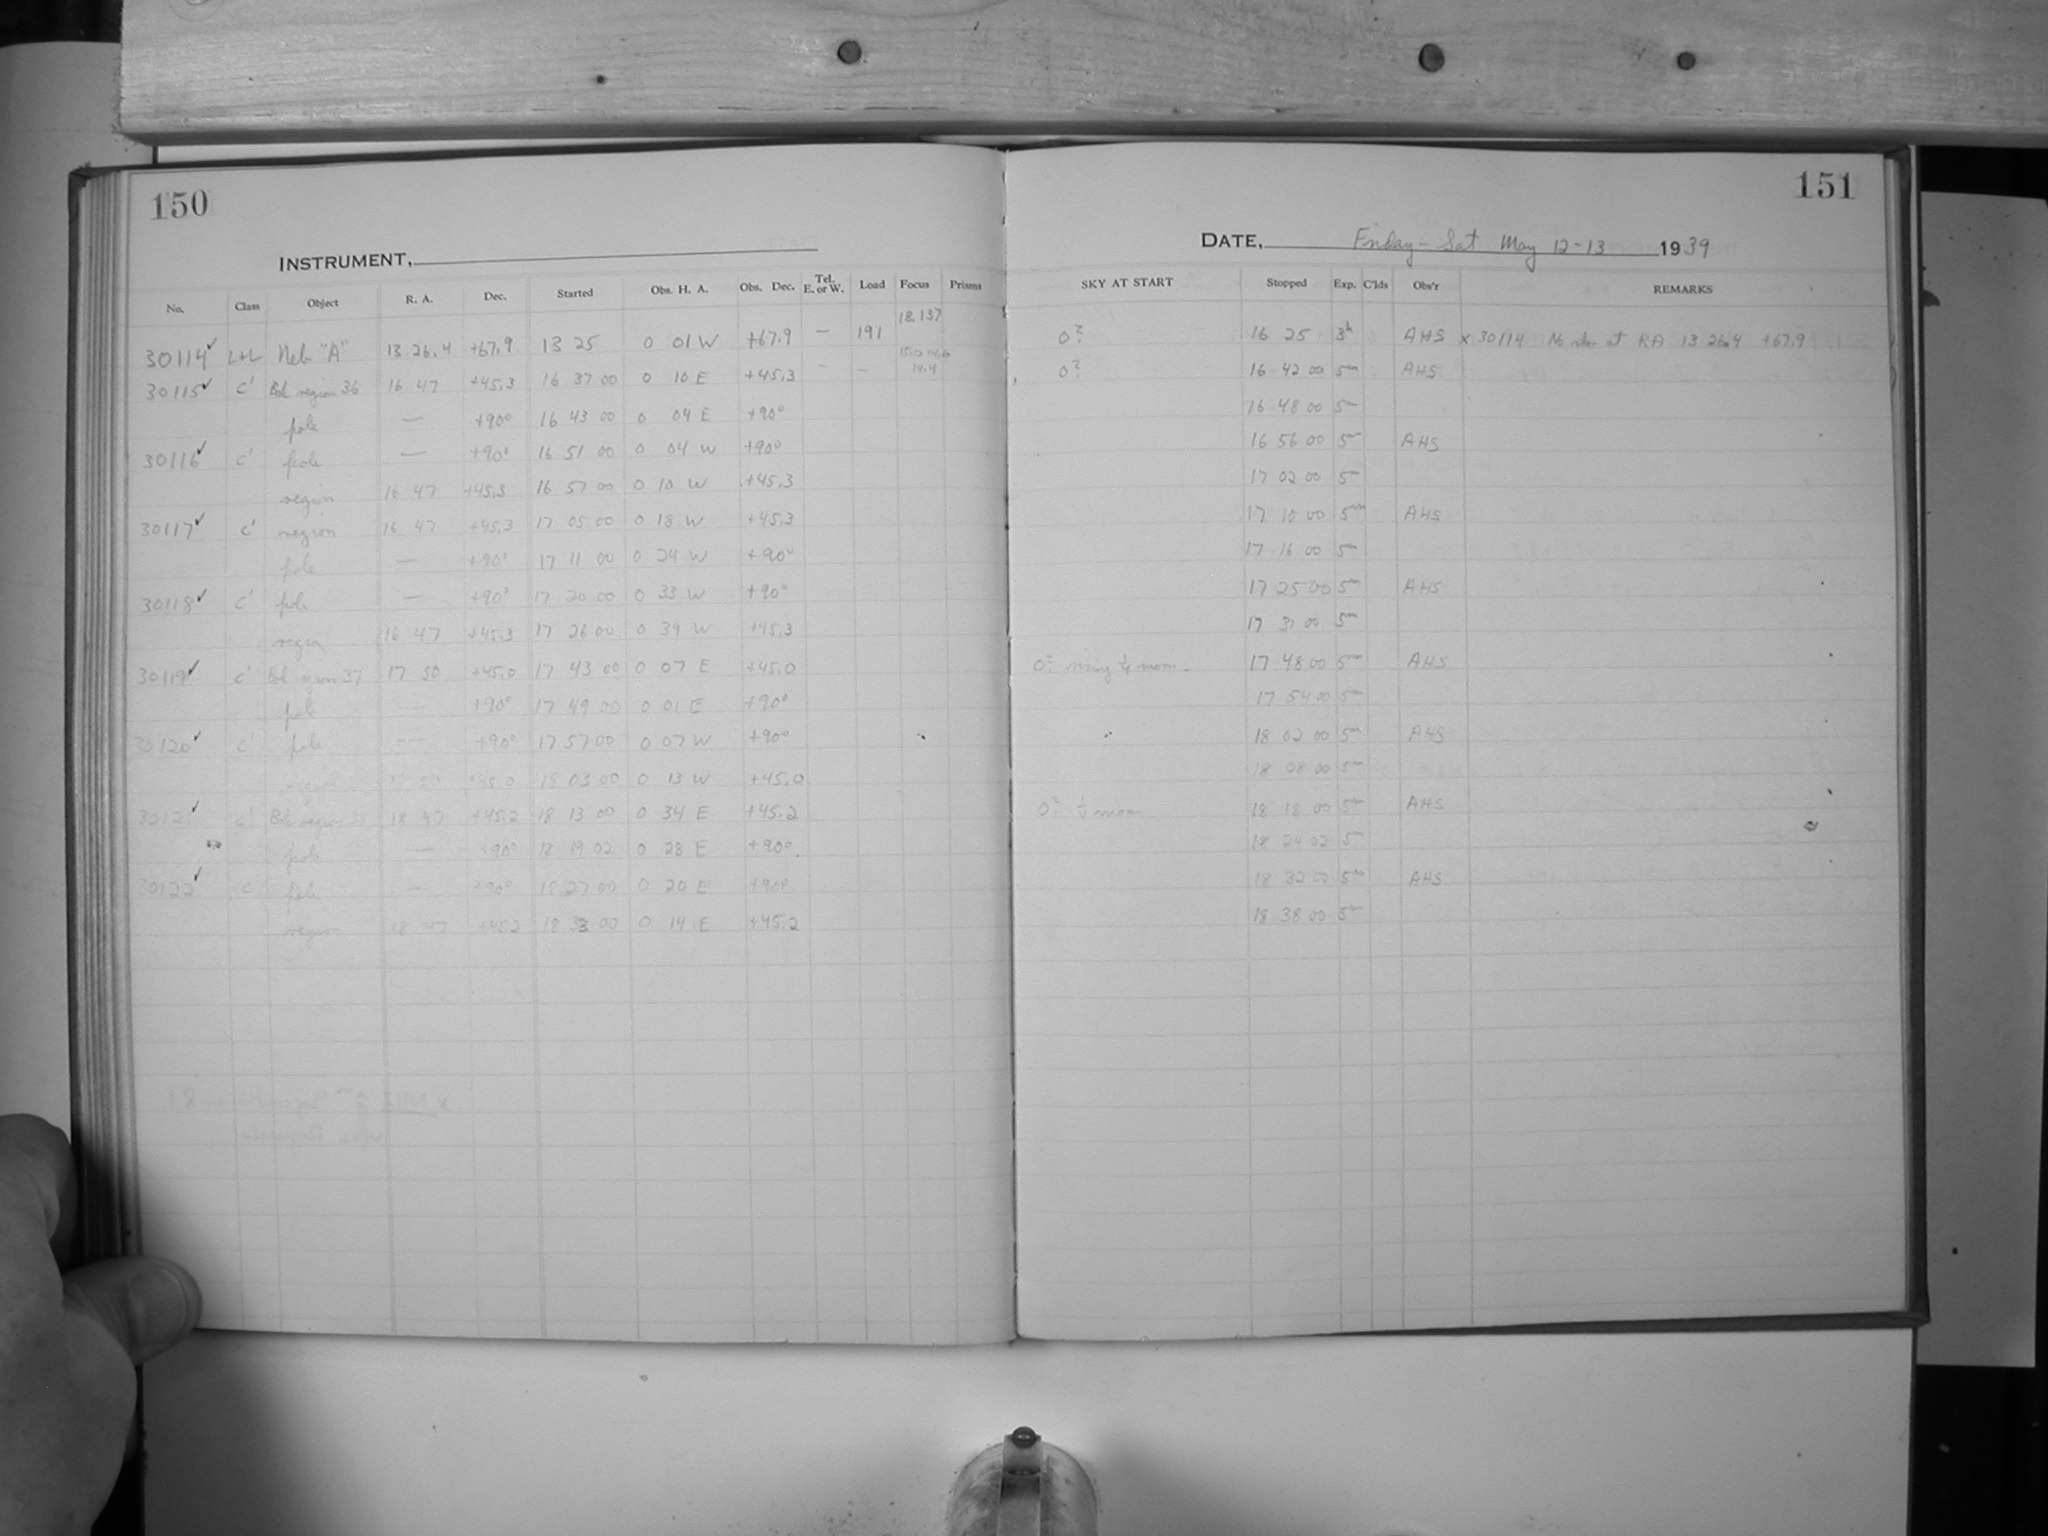 150
INSTRUMENT,
No. Class Object R. A. Dec. Started Obs. H. A. Obs. Dec. Tel. E. or W. Load Focus Prisms
18.137
30114 L+L Neb "A" 13 26.4 +67.9 13 25 0 01 W +67.9 — 191
30115 C' region 36 16 47 +45.3 16 37 00 0 10 E +45.3 – – 14.4
pole — +90° 16 43 00 0 04 E +90°
30116 C' pole — +90° 16 51 00 0 04 W +90°
region 16 47 +45.3 16 57 00 0 10 W +45.3
30117 C' region 16 47 +45.3 17 05 00 0 18 W +45.3
pole — +90° 17 11 00 0 24 W +90°
30118 C' pole — +90° 17 20 00 0 33 W +90°
region 16 47 +45.3 17 26 00 0 39 W +45.3
30119 C' region 37 17 50 +45.0 17 43 00 0 07 E +45.0
pole — +90° 17 49 00 0 01 E +90°
30120 C' pole — +90° 17 57 00 0 07 W +90°
region 50 +45.0 18 03 00 0 13 W +45.0
30121 C' region 38 18 47 +45.2 18 13 00 0 34 E +45.2
pole — +90° 18 19 02 0 28 E +90°
30122 C' pole — +90° 18 27 00 0 20 E +90°
region 18 47 +45.2 18 33 00 0 14 E +45.2
151
DATE, Friday - Sat May 12-13 1939
SKY AT START Stopped Exp. C'lds Obs'r REMARKS
0? 16 25 3h AHS x 30114 No star at RA 13 26.4 +67.9
0? 16 42 00 5m AHS
16 48 00 5m
16 56 00 5m AHS
17 02 00 5m
17 10 00 5m AHS
17 16 00 5m
17 25 00 5m AHS
17 31 00 5m
0? rising ¼ moon. 17 48 00 5m AHS
17 54 00 5m
" 18 02 00 5m AHS
18 08 00 5m
0? ¼ moon 18 18 00 5m AHS
18 24 02 5m
18 32 00 5m AHS
18 38 00 5m